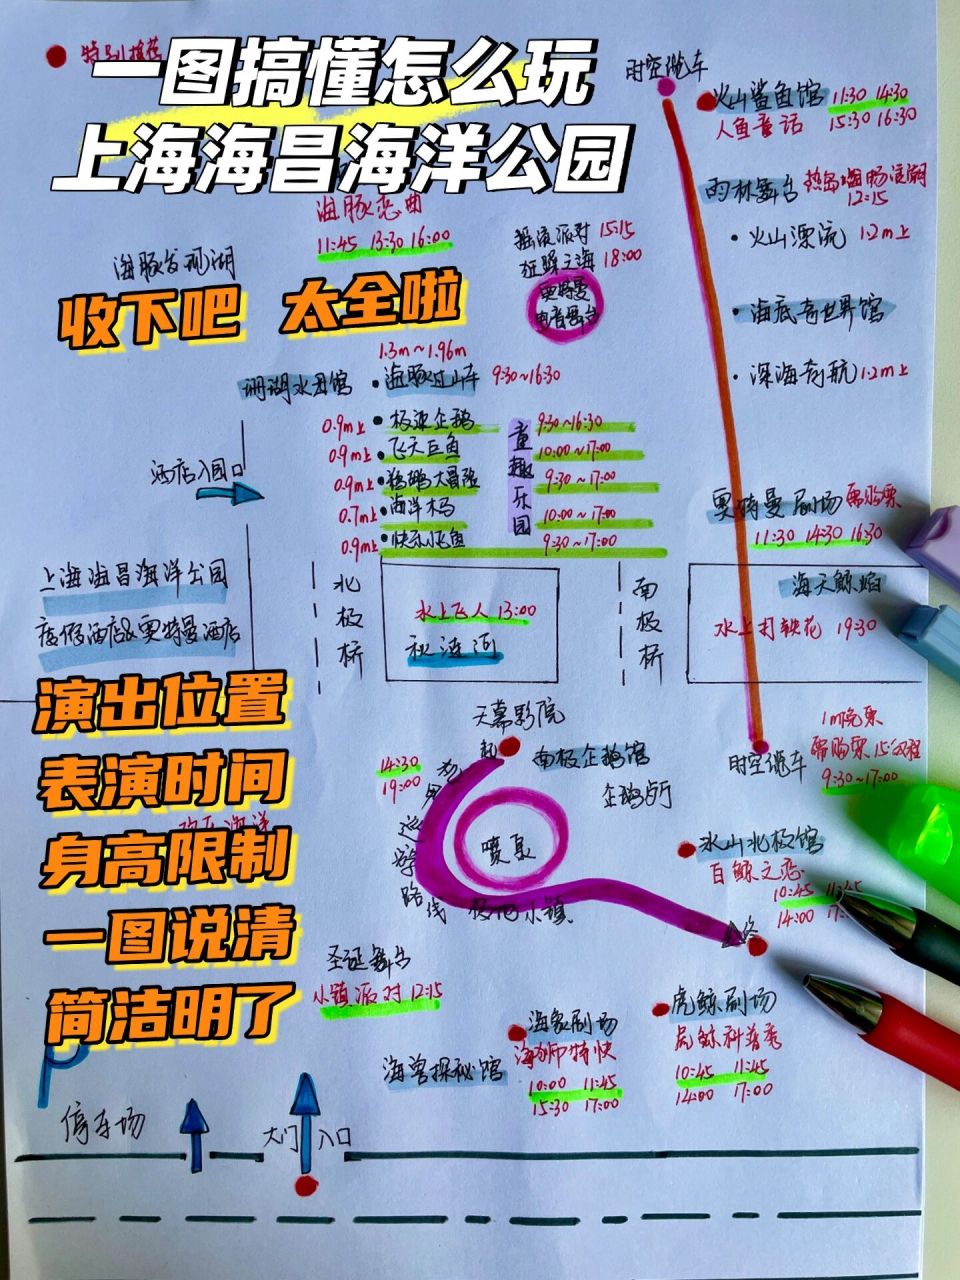 特别推荐
一图搞懂怎么玩
上海海昌海洋公园
时空缆车
火山鲨鱼馆 11:30 14:30
人鱼童话 15:30 16:30
雨林舞台
12:15
海豚恋曲
11:45 13:30 16:00
海豚发现湖
摇滚派对 15:15
狂躁之海 18:00
奥特曼
火山漂流 1.2m上
收下吧 太全啦
海底奇世界馆
1.3m~1.96m
珊瑚水母馆
海豚过山车 9:30~16:30
深海奇航 1.2m上
0.9m上 极速企鹅 9:30~16:30
0.9m上 飞天巨鱼 10:00~17:00
0.9m上 9:30~17:00
0.7m上 海洋木马 10:00~17:00
0.9m上 快乐小飞鱼 9:30~17:00
童趣乐园
酒店入园口
奥特曼剧场 需购票
11:30 14:30 16:30
上海海昌海洋公园
度假酒店&奥特曼酒店
北极桥
水上飞人 13:00
南极桥
海天鲸焰
水上打铁花 19:30
演出位置
表演时间
身高限制
一图说清
简洁明了
天幕影院
起
14:30
19:00
南极企鹅馆
巡游路线
喷泉
时空缆车
1m免票
需购票 15分/程
9:30~17:00
冰山北极馆
白鲸之恋
10:45 11:45
14:00
极地小镇
终
圣诞舞台
小镇派对 12:15
海兽探秘馆
海象剧场
海狮特快
10:00 11:45
15:30 17:00
虎鲸剧场
虎鲸科普秀
10:45 11:45
14:00 17:00
P
停车场
大门入口